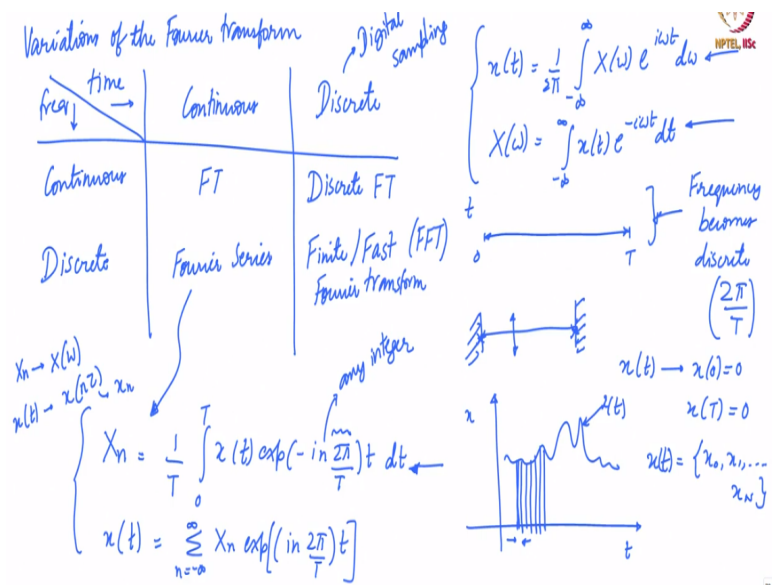 Variations of the Fourier transform
Digital sampling
time →
freq ↓
Continuous
Discrete
Continuous
FT
Discrete FT
Discrete
Fourier Series
Finite/Fast (FFT)
Fourier transform
Xn → X(ω)
x(t) → x(nτ) xn
any integer
Xn = 1/T ∫_0^T x(t) exp(-in 2π/T)t dt ←
x(t) = Σ_{n=-∞}^{∞} Xn exp[(in 2π/T)t]
NPTEL, IISc
x(t) = 1/2π ∫_{-∞}^{∞} X(ω) e^{iωt} dω ←
X(ω) = ∫_{-∞}^{∞} x(t) e^{-iωt} dt ←
t
0
T
Frequency
becomes
discrete
(2π/T)
x(t) → x(0)=0
x(T)=0
x
x(t)
t
x(t) = {x0, x1, ...
xN}